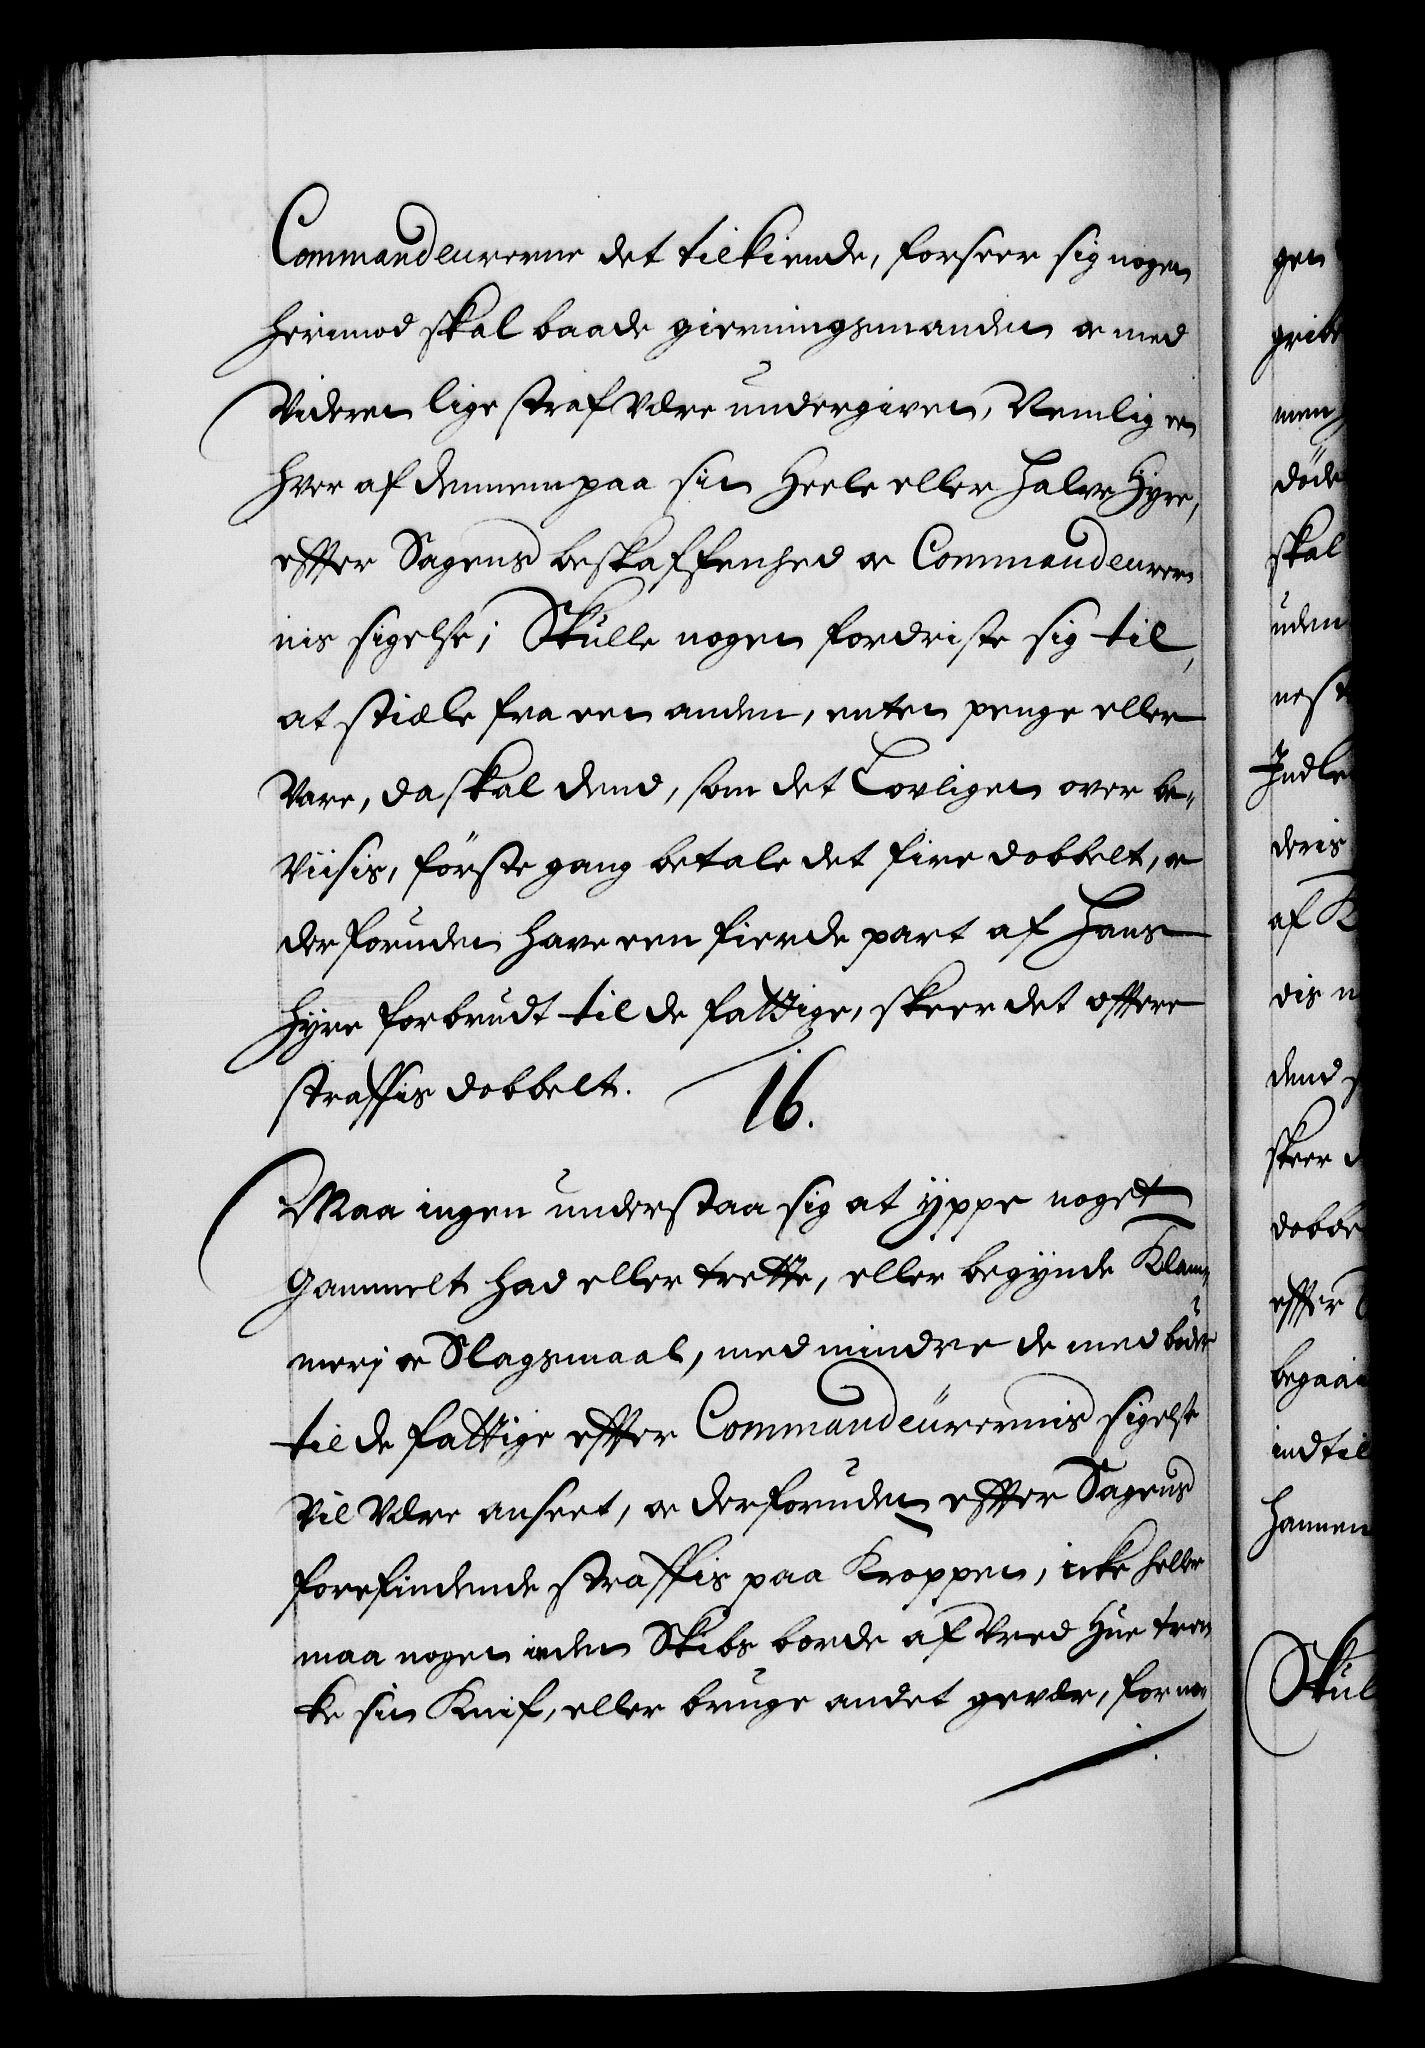 Commandeurerne det tilkiende, forseer sig nogen
herimod skal baade gierningsmanden oc med
Videren lige straf være undergiven, Nemlig en
hver af dennem paa sin Heele eller halve Hyre,
effter Sagens beskaffenhed oc Commandeurer-
nis sigelse; Skulle nogen fordriste sig til,
at stiæle fra een anden, enten penge eller
Vare, da skal dend, som det Lovligen over be-
Viisis, förste gang betale det fire dobbelt, oc
der foruden have een fierde part af hans
hyre forbrudt til de fattige, skeer det offtere
straffis dobbelt.
16.
Maa ingen understaa sig at yppe noget
Gammelt had eller trette, eller begynde Klam-
merj oc Slagsmaal, med mindre de med bøder
til de fattige effter Commandeürernis sigelse
vil være anseet, oc derforuden effter Sagens
forefindende straffis paa Kroppen, icke heller
maa nogen inden Skibs borde af Vred Hue trec-
ke sin Knif, eller bruge andet gevær, for no-
gen
gribe
men
döde
skal
uden
nest
Indle
deris
af K
dis
dend
skeer
dobbe
effter
begaa
indtil
hannem
Skul